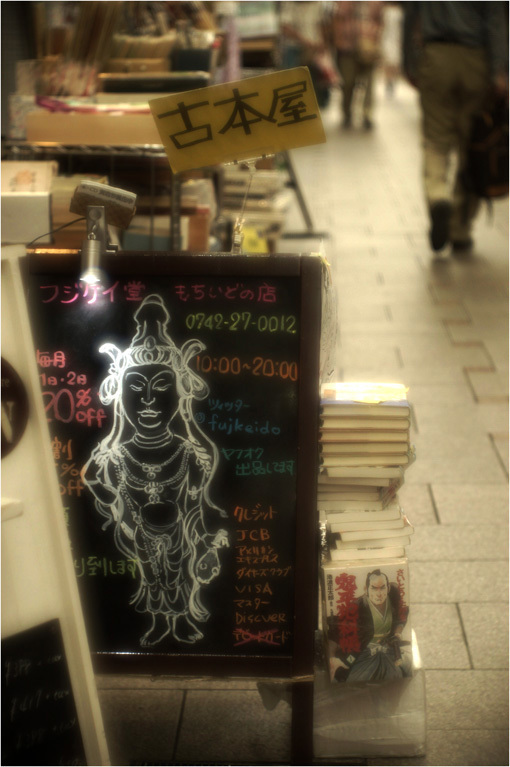 古本屋
フジケイ堂 もちいどの店
0742-27-0012
毎月
1日・2日
20%
off
10:00~20:00
ツイッター
@fujkeido
ヤフオク
出品してます
割
%
off
り到します
クレジット
JCB
アメリカン
エキスプレス
ダイナースクラブ
VISA
マスター
DISCVER